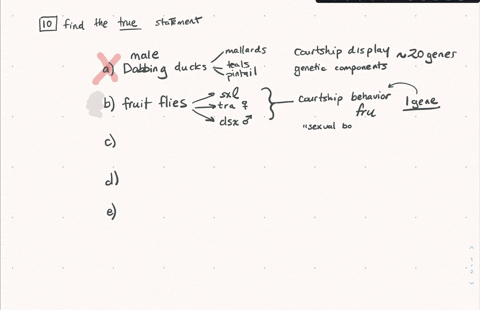 10 find the true statement
male
a) Dabbing ducks
mallards
teals
pintail
Courtship display ~20 genes
genetic components
b) fruit flies
sxl
tra ♀
dsx ♂
Courtship behavior 1 gene
fru
"sexual bo
c)
d)
e)